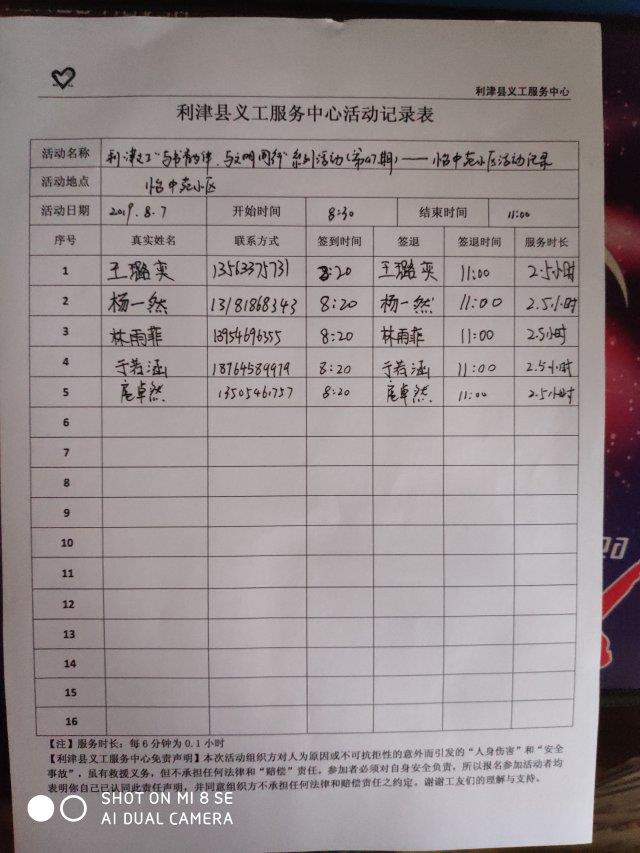 利津县义工服务中心
利津县义工服务中心活动记录表
活动名称 利津义工"与书为伴、与文明同行"系列活动(第47期)——怡中苑小区活动记录
活动地点 怡中苑小区
活动日期 2019.8.7 开始时间 8:30 结束时间 11:00
序号 真实姓名 联系方式 签到时间 签退 签退时间 服务时长
1 王璐奕 13563375731 8:20 王璐奕 11:00 2.5小时
2 杨一然 13181868343 8:20 杨一然 11:00 2.5小时
3 林雨菲 18954696355 8:20 林雨菲 11:00 2.5小时
4 于若涵 18764589979 8:20 于若涵 11:00 2.5小时
5 扈卓然 13505461757 8:20 扈卓然 11:00 2.5小时
6
7
8
9
10
11
12
13
14
15
16
【注】服务时长：每6分钟为0.1小时
【利津县义工服务中心免责声明】本次活动组织方对人为原因或不可抗拒性的意外而引发的"人身伤害"和"安全
事故"，虽有救援义务，但不承担任何法律和"赔偿"责任，参加者必须对自身安全负责，所以报名参加活动者均
表明你自己已认同此责任声明，并同意组织方不承担任何法律和赔偿责任之约定。谢谢工友们的理解与支持。
SHOT ON MI 8 SE
AI DUAL CAMERA